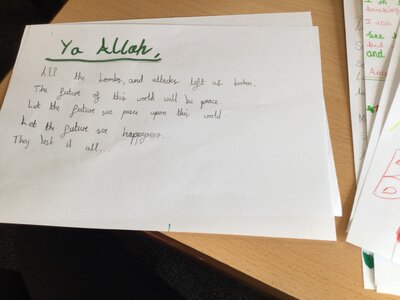 Ya Allah,
All the bombs, and attacks left us broken.
The future of this world will be peace.
Let the future see peace upon this world.
Let the future see happyness.
They lost it all...
I can
see
but
and